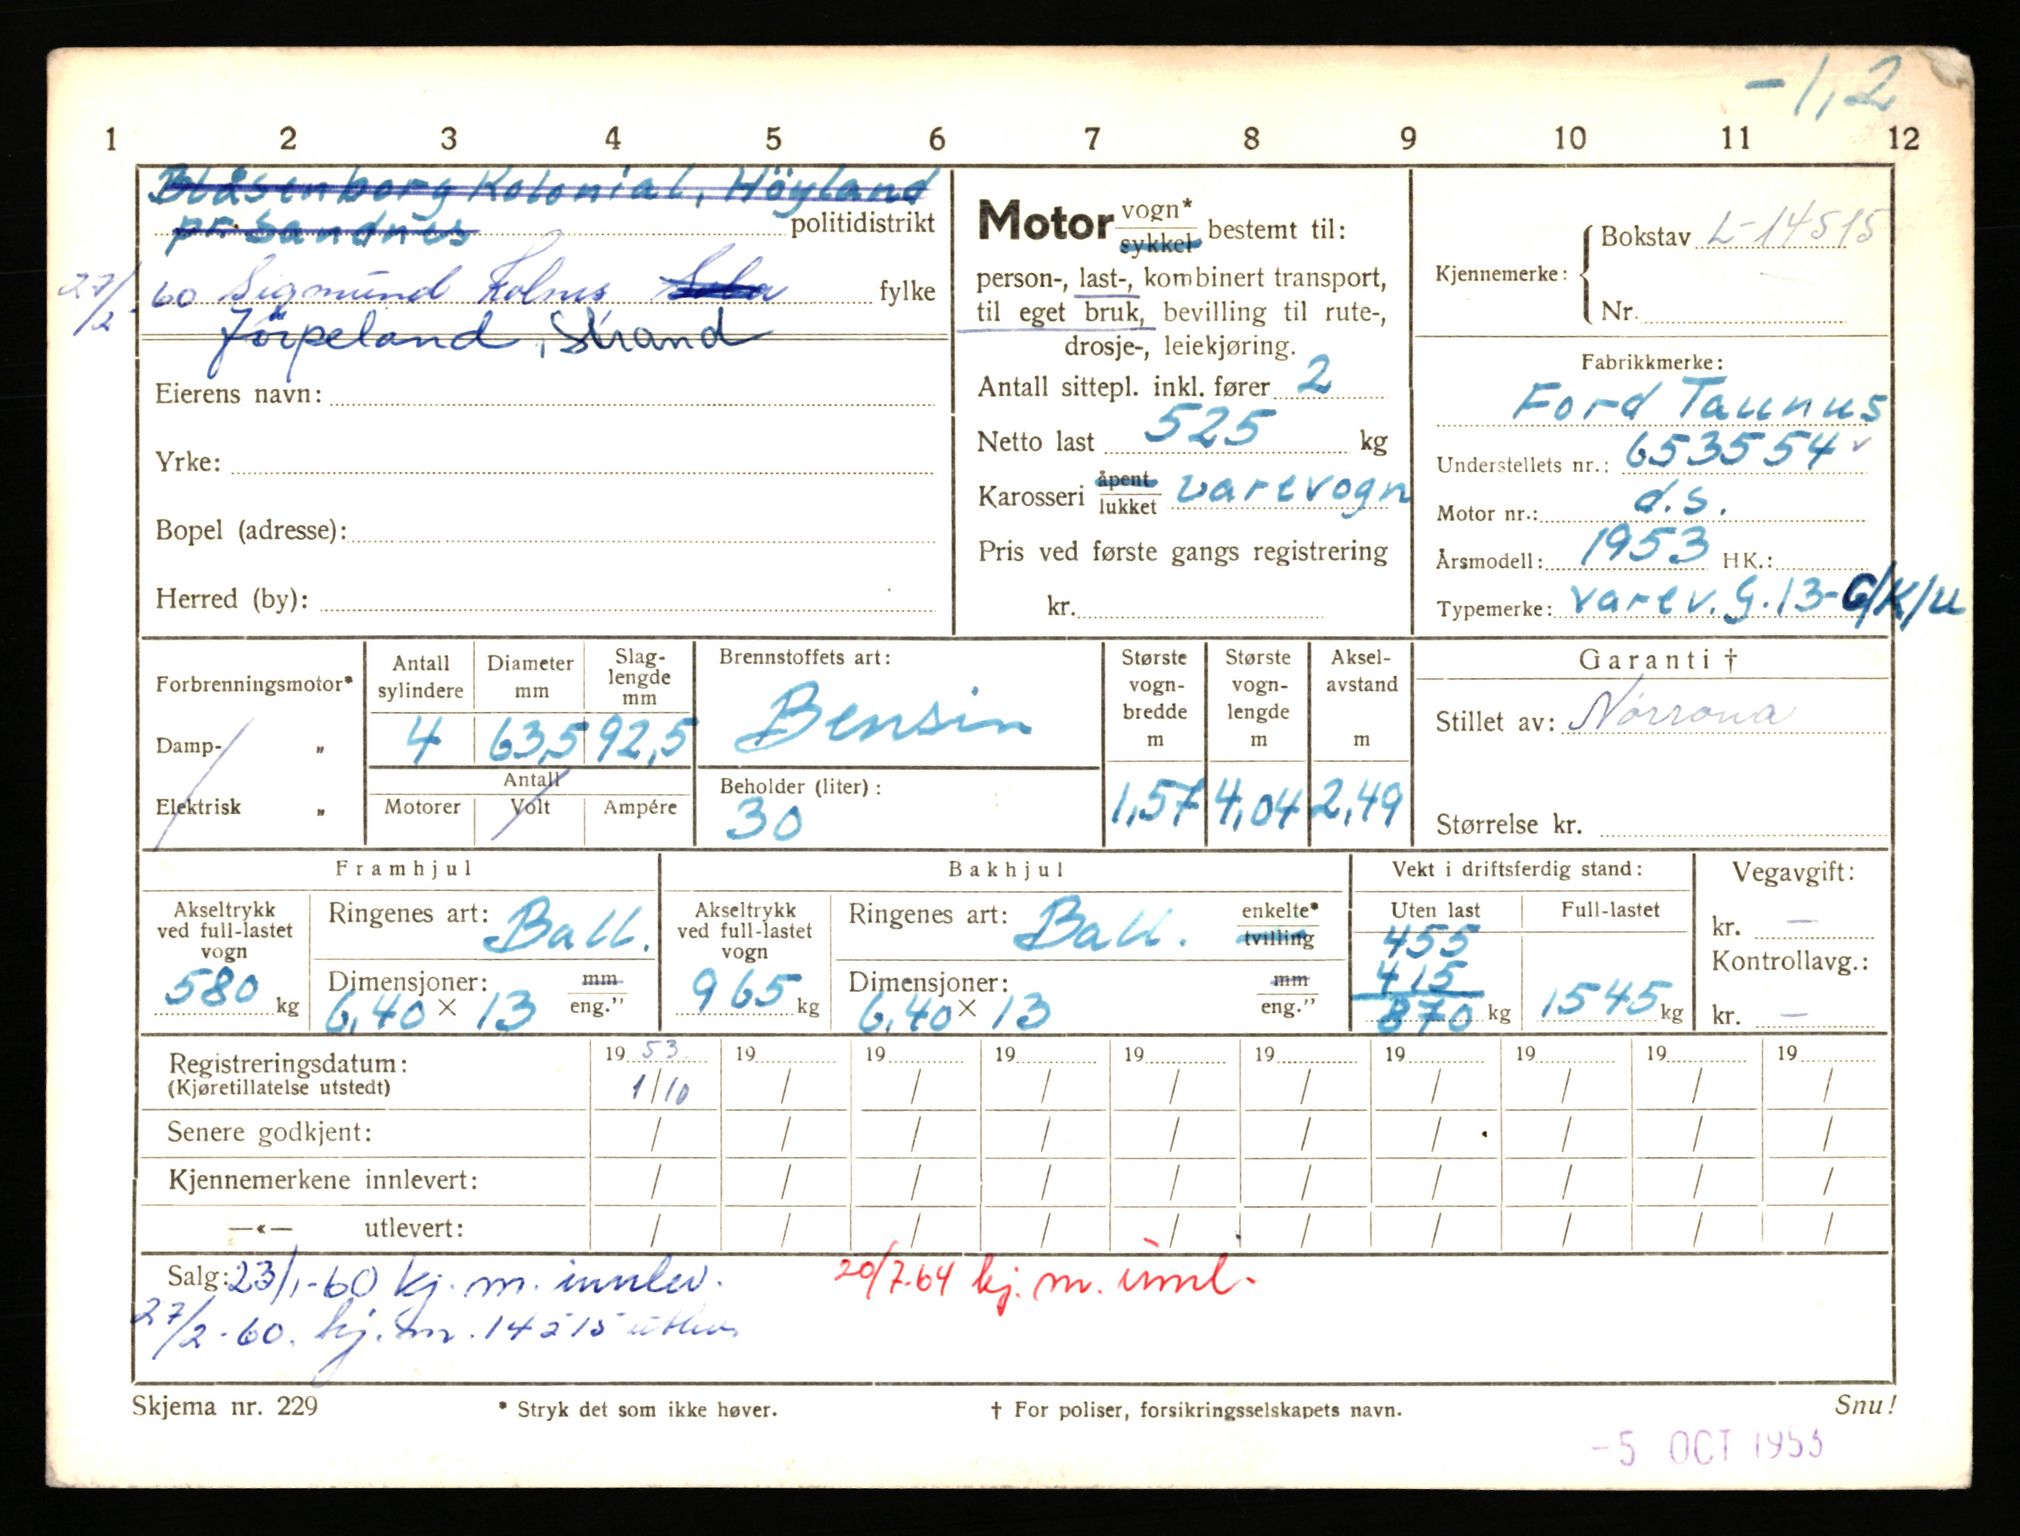 -1,2
1 2 3 4 5 6 7 8 9 10 11 12
Blåsenborg Kolonial, Höyland
pr. Sandnes politidistrikt
27/2-60 Sigmund Kolnes Sola fylke
Jörpeland, Strand
Eierens navn:
Yrke:
Bopel (adresse):
Herred (by):
Motor vogn* sykkel bestemt til:
person-, last-, kombinert transport,
til eget bruk, bevilling til rute-,
drosje-, leiekjøring.
Antall sittepl. inkl. fører 2
Netto last 525 kg
Karosseri åpent lukket varevogn
Pris ved første gangs registrering
kr.
Kjennemerke: Bokstav L-14515
Nr.
Fabrikkmerke:
Ford Taunus
Understellets nr.: 653554 v
Motor nr.: d.s.
Årsmodell: 1953 HK.:
Typemerke: varev. G.13-G/K/u
Forbrenningsmotor*
Damp- „
Elektrisk „
Antall sylindere 4
Diameter mm 63,5
Slag-lengde mm 92,5
Antall
Motorer Volt Ampére
Brennstoffets art:
Bensin
Beholder (liter):
30
Største vogn-bredde m 1,57
Største vogn-lengde m 4,04
Aksel-avstand m 2,49
Garanti †
Stillet av: Norrona
Størrelse kr.
Framhjul
Akseltrykk ved full-lastet vogn 580 kg
Ringenes art: Ball.
Dimensjoner: mm
6,40 × 13 eng.”
Bakhjul
Akseltrykk ved full-lastet vogn 965 kg
Ringenes art: Ball. enkelte* tvilling
Dimensjoner: mm
6,40 × 13 eng.”
Vekt i driftsferdig stand:
Uten last Full-lastet
455
415
870 kg 1545 kg
Vegavgift:
kr. —
Kontrollavg.:
kr. —
Registreringsdatum: 19 53 19 19 19 19 19 19 19 19 19
(Kjøretillatelse utstedt) 1/10 / / / / / / / / /
Senere godkjent: / / / / / / / / / /
Kjennemerkene innlevert: / / / / / / / / / /
—«— utlevert: / / / / / / / / / /
Salg: 23/1-60 kj. m. innlev. 20/7-64 kj. m. innl.
27/2-60. kj. m. 14515 utlev.
Skjema nr. 229 * Stryk det som ikke høver. † For poliser, forsikringsselskapets navn. Snu!
-5 OCT 1953